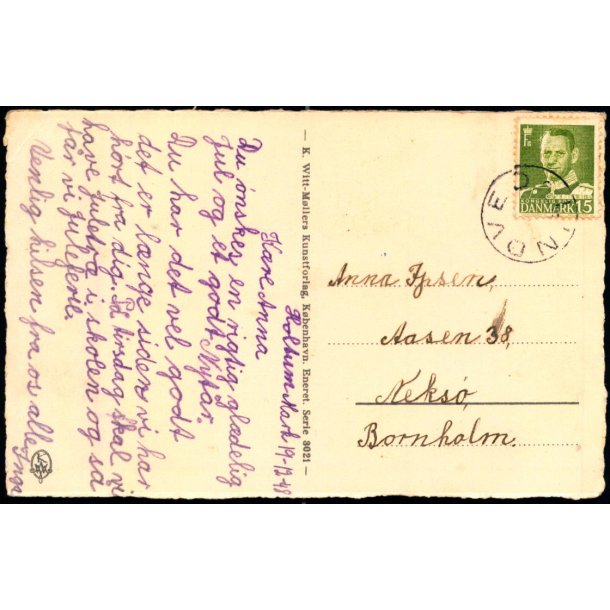 Holtum Mark 19-12-48
Kære Anna
Du ønskes en rigtig glædelig
Jul og et godt Nytår.
Du har det vel godt
det er længe siden vi har
hørt fra dig. På tirsdag skal vi
have juletræ i skolen og så
får vi juleferie.
Venlig hilsen fra os alle Inga
— K. Witt-Møllers Kunstforlag, København. Eneret. Serie 3021 —
DANMARK 15
Anna Ipsen,
Aasen 38,
Neksø,
Bornholm.